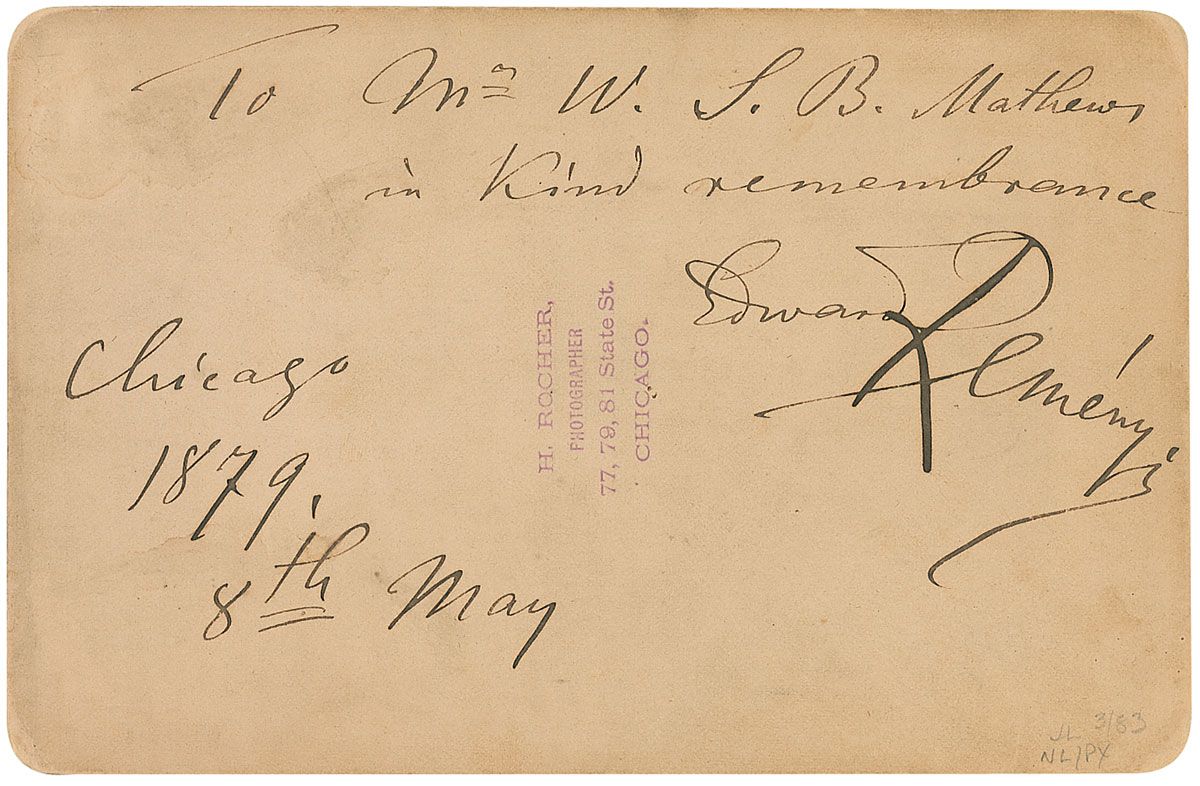 To Mr W. S. B. Mathews
in Kind remembrance
Edward Reményi
Chicago
1879.
8th May
H. ROCHER,
PHOTOGRAPHER
77, 79, 81 State St.
CHICAGO.
JL 3/83
NL/PX